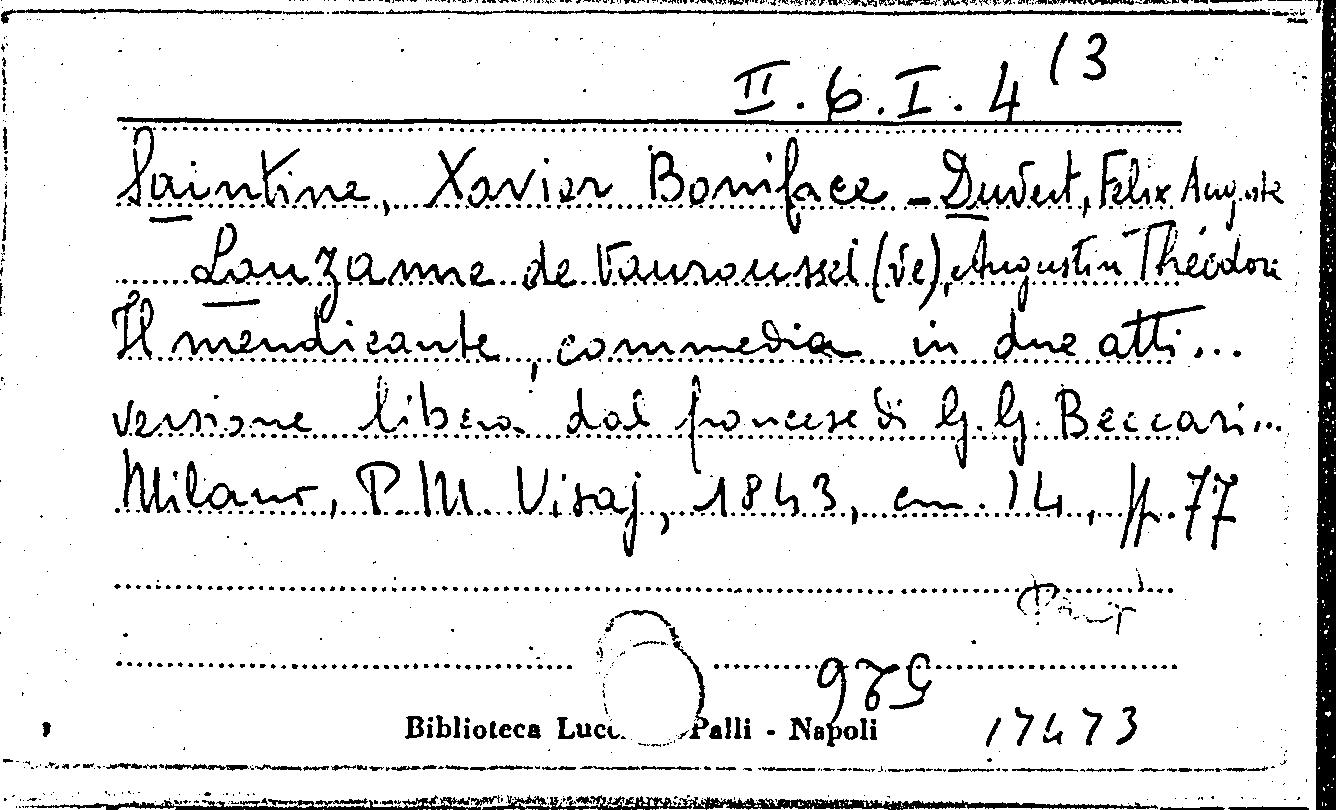 II. 6. I. 4 (3
Saintine, Xavier Boniface - Duvert, Felix Auguste
Lauzanne de Vauroussel (de), Augustin Théodore
Il mendicante, commedia in due atti...
versione libera dal francese di G. G. Beccari...
Milano, P. M. Visaj, 1843, cm. 14, pp. 77
526
Biblioteca Lucc Palli - Napoli
17473